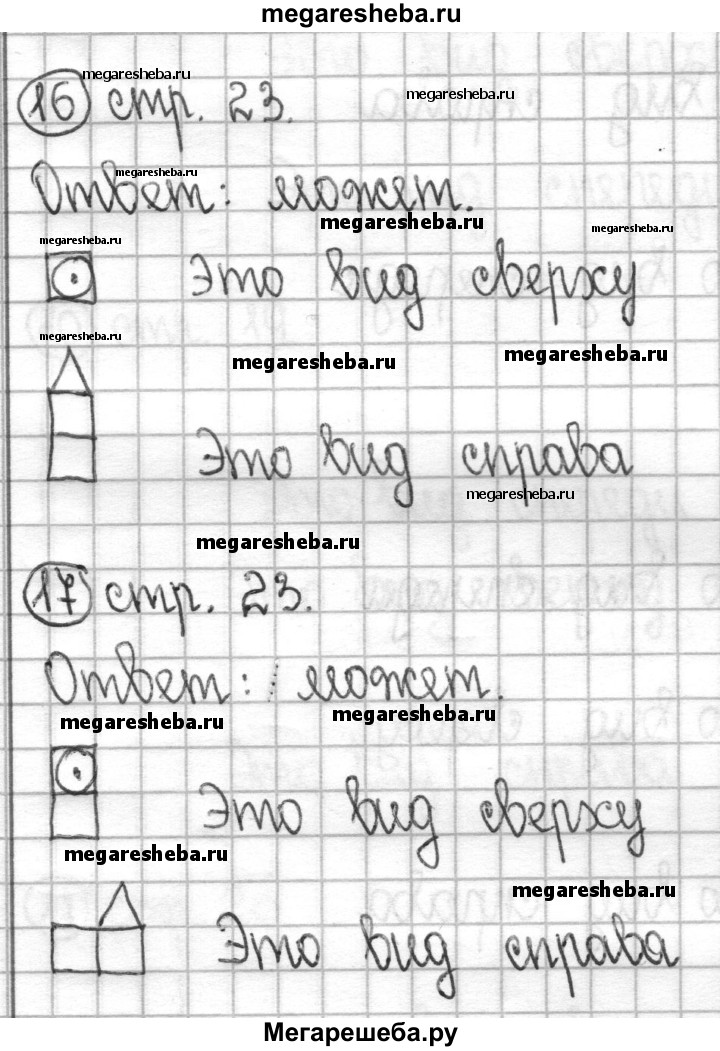 megaresheba.ru
16 стр. 23.
megaresheba.ru
megaresheba.ru
megaresheba.ru
Ответ: может.
megaresheba.ru
megaresheba.ru
megaresheba.ru
Это вид сверху
megaresheba.ru
megaresheba.ru
megaresheba.ru
Это вид справа
megaresheba.ru
megaresheba.ru
17 стр. 23.
Ответ: может.
megaresheba.ru
megaresheba.ru
Это вид сверху
megaresheba.ru
megaresheba.ru
Это вид справа
Мегарешеба.ру